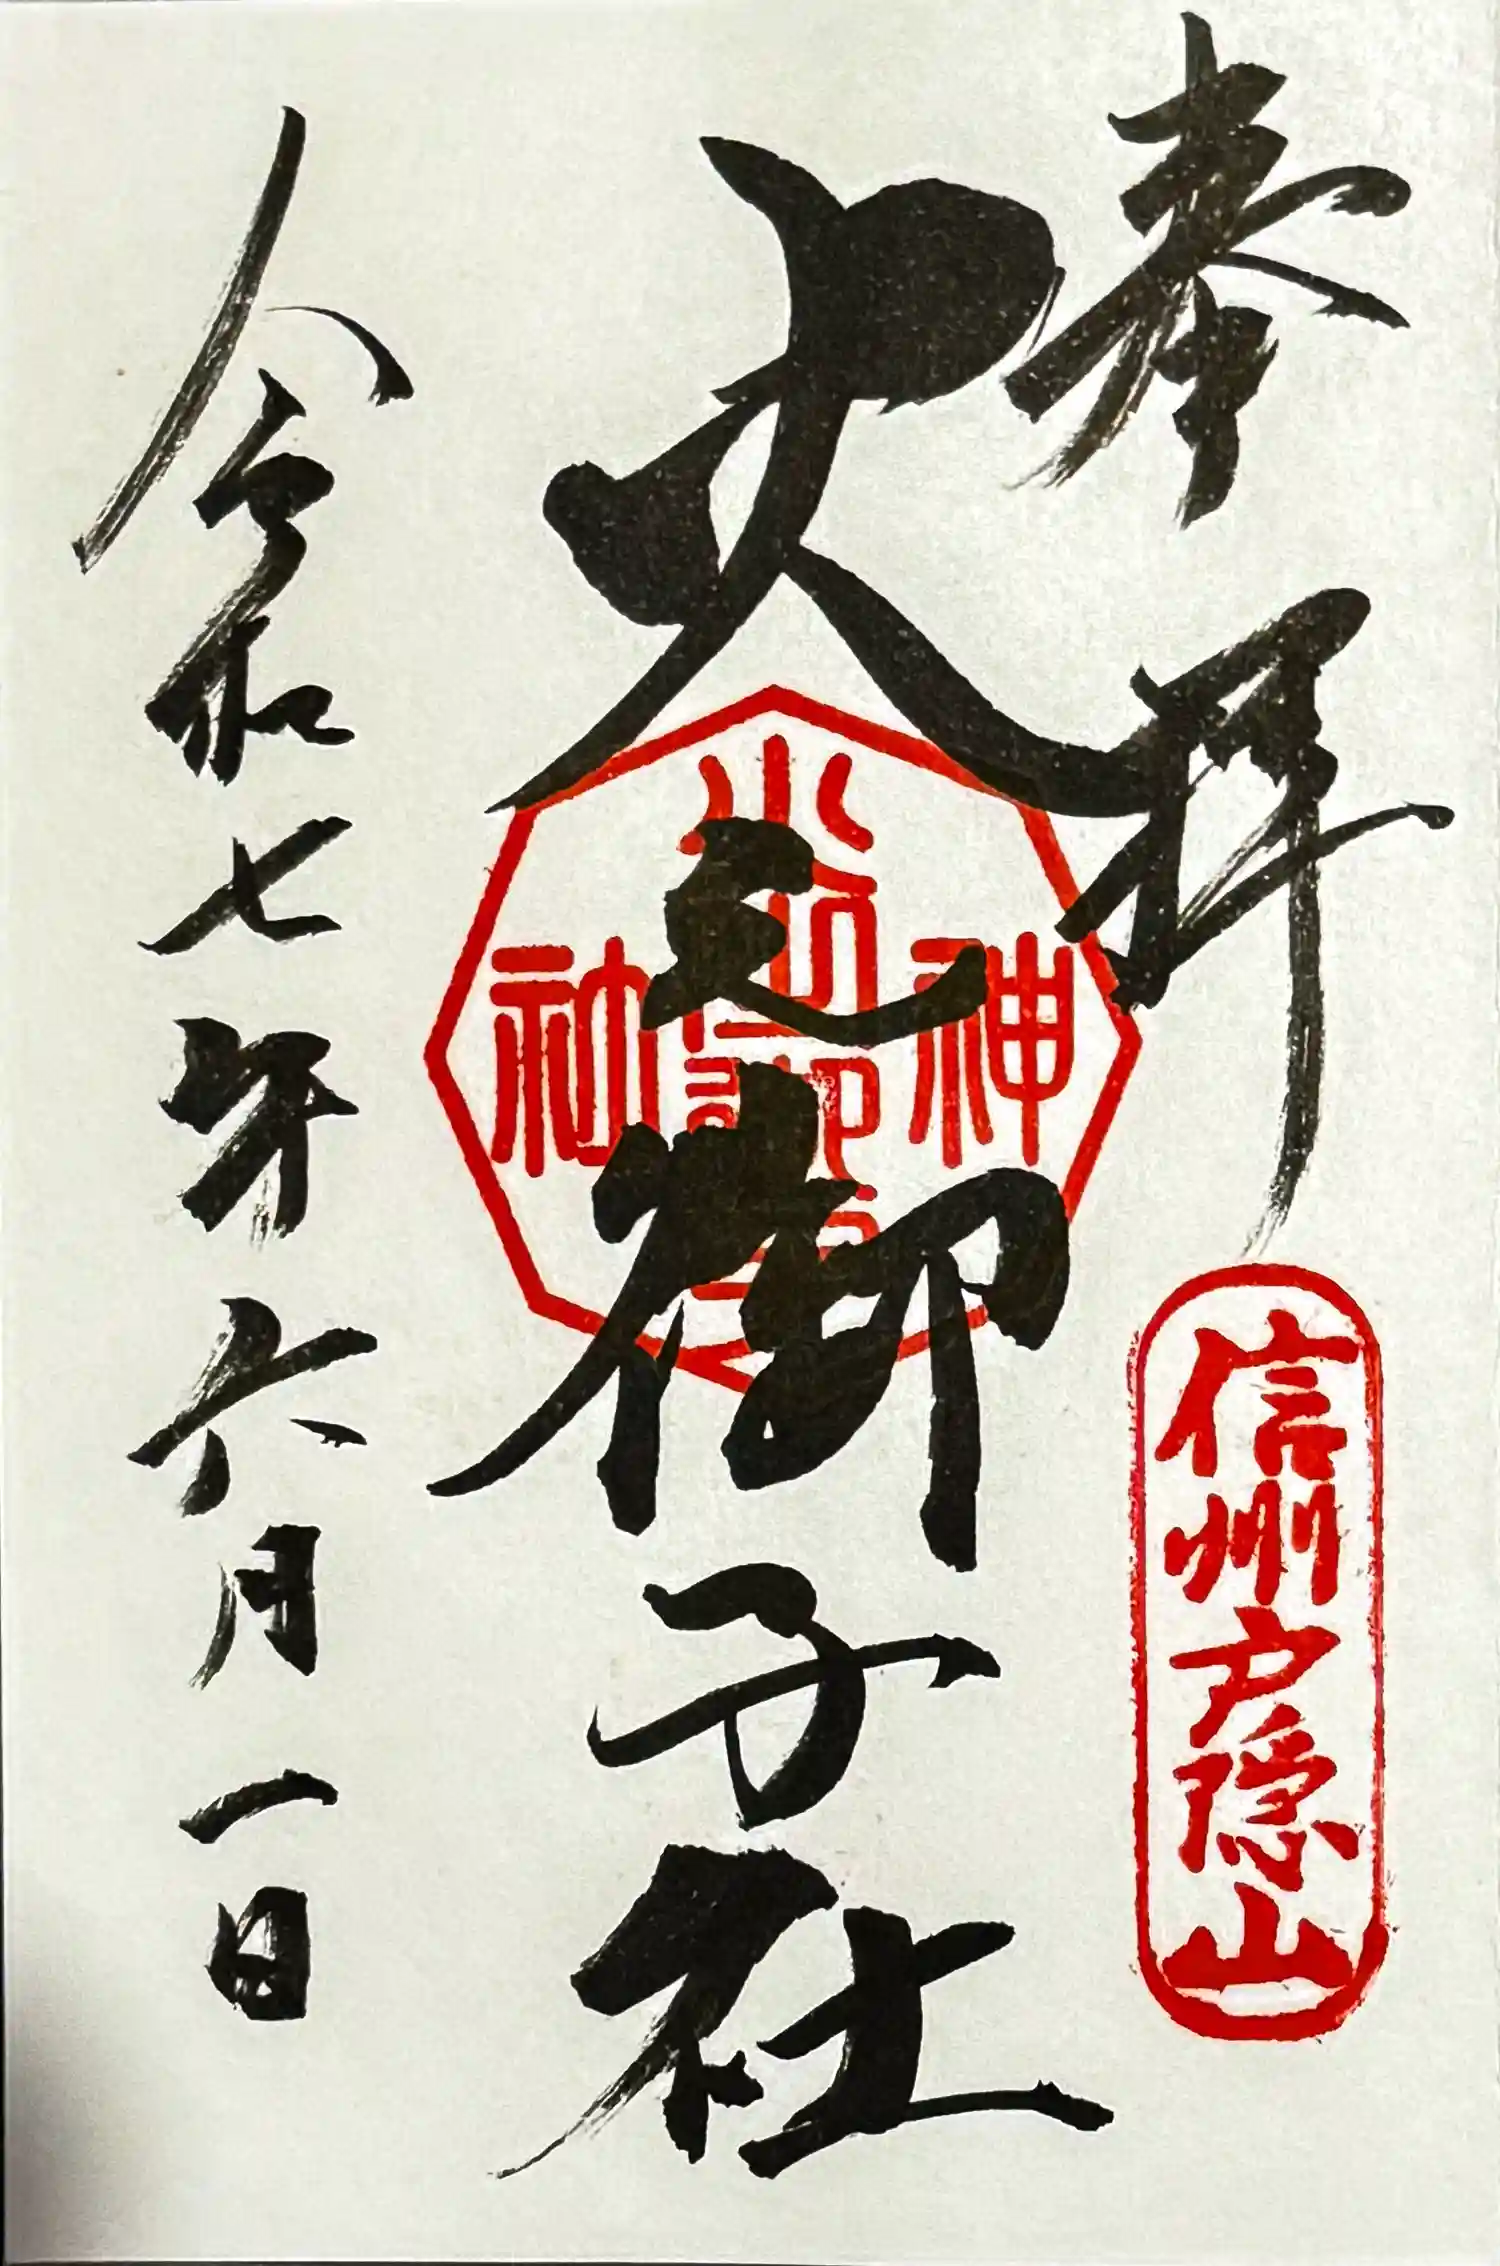 奉拝
信州戸隠山
火之御子社
令和七年六月一日
神
社